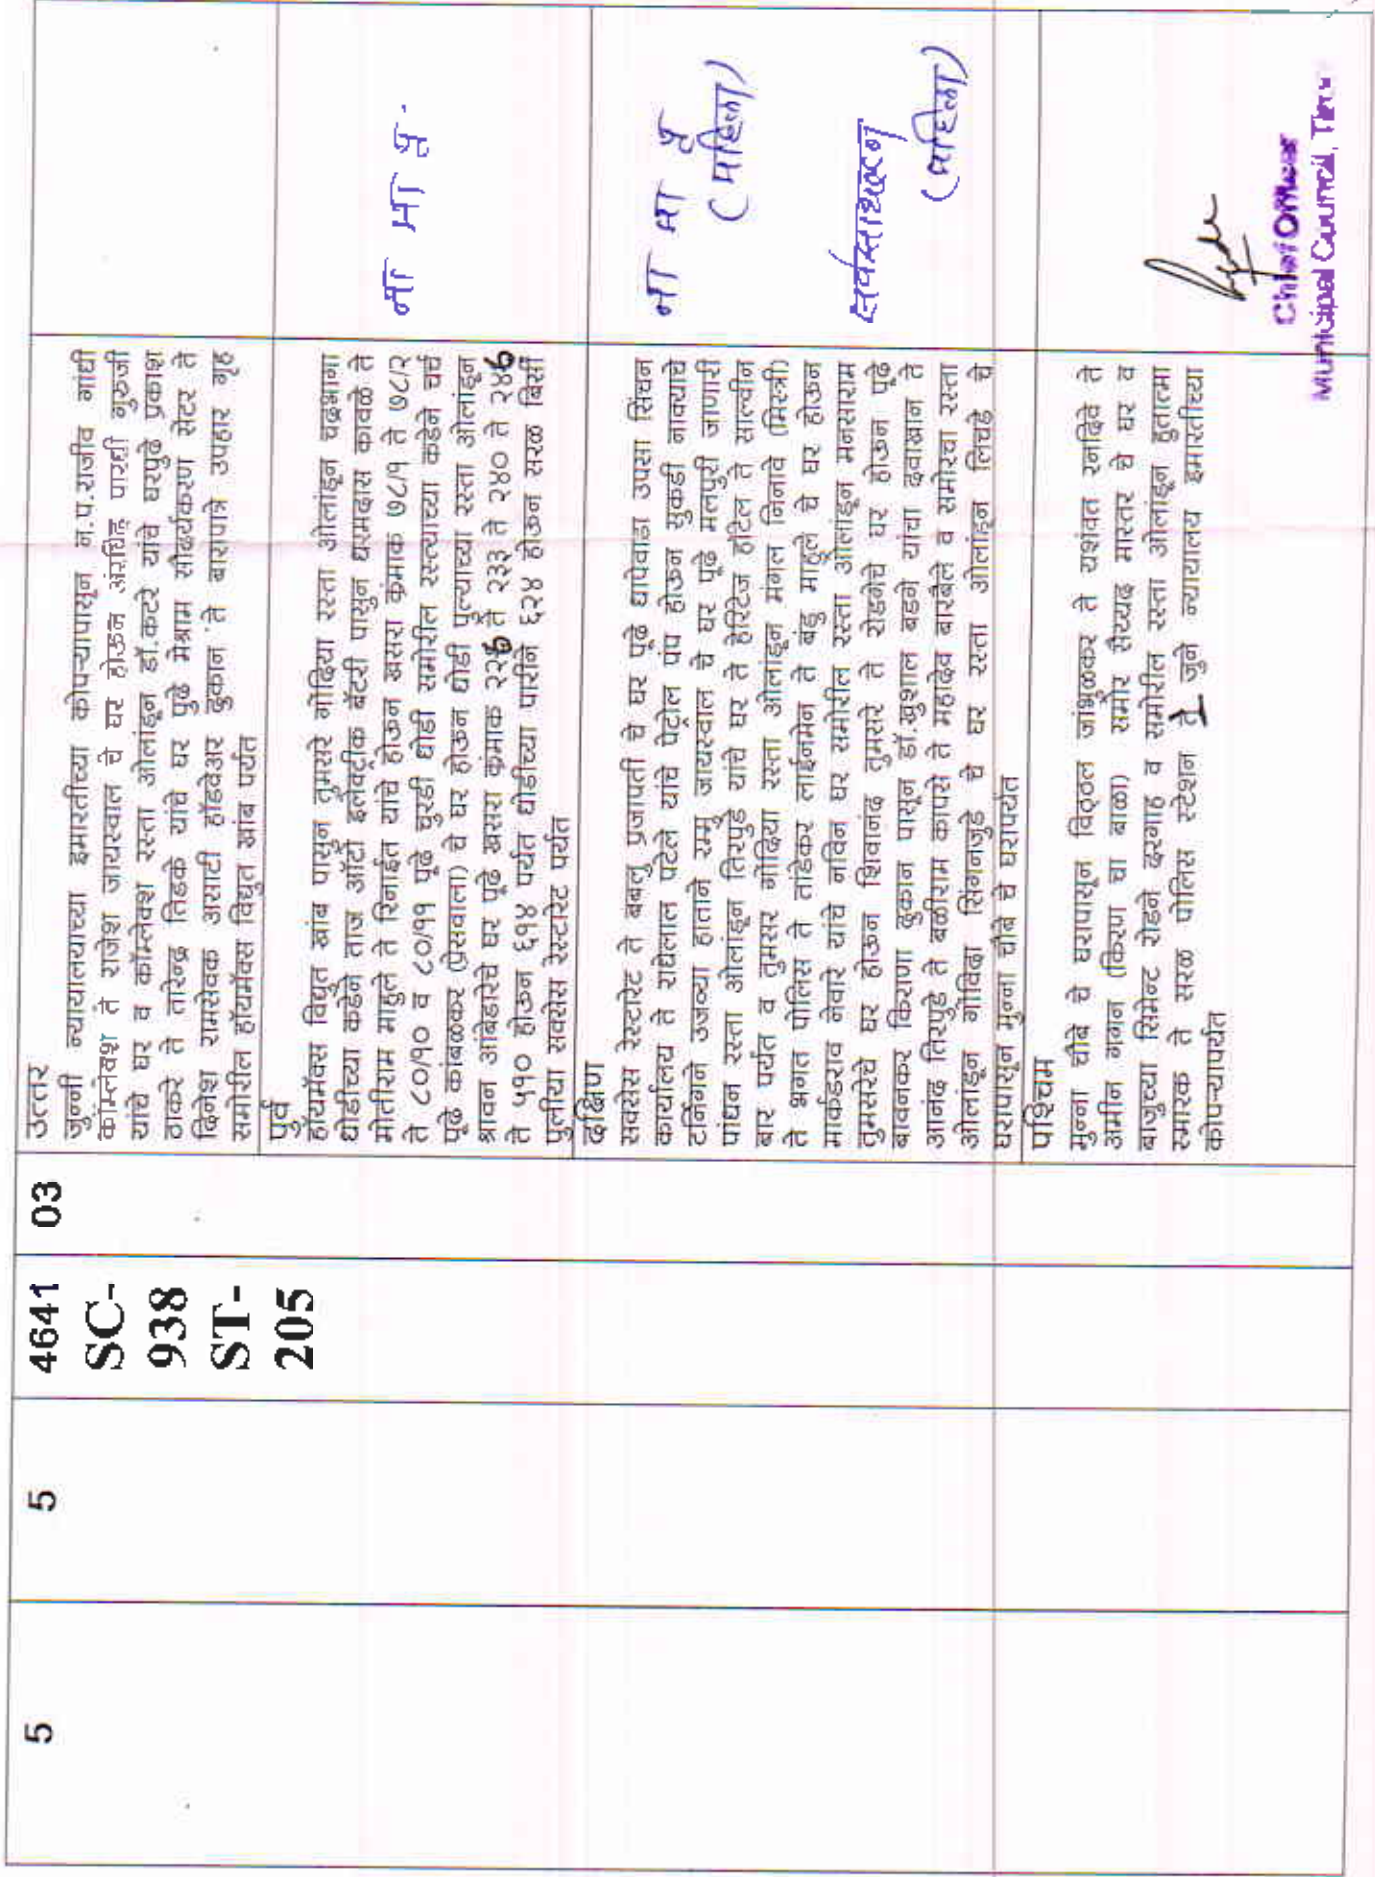 5
5
4641
SC-
938
ST-
205
03
उत्तर
जुन्नी न्यायालयाच्या इमारतीच्या कोपऱ्यापासून न.प.राजीव गांधी
कॉम्प्लेक्श ते राजेश जायस्वाल चे घर होऊन अरविंद्र पारधी गुरुजी
यांचे घर व कॉम्लेक्श रस्ता ओलांडून डॉ.कटरे यांचे घरपुढे प्रकाश
ठाकरे ते तारेन्द्र तिडके यांचे घर पुढे मेश्राम सौंदर्यकरण सेंटर ते
दिनेश रामसेवक असाटी हॉर्डवेअर दुकान ते बारापात्रे उपहार गृह
समोरील हॉयमॅक्स विद्युत खांब पर्यंत
पुर्व
हॉयमॅक्स विद्युत खांब पासुन तुमसर गोंदिया रस्ता ओलांडून चद्रभागा
धोडीच्या कडेने ताज ऑटो इलेक्ट्रीक बॅटरी पासुन धरमदास कावळे ते
मोतीराम माहुले ते रिनाईत यांचे होऊन खसरा क्रमाक ७८/१ ते ७८/२
ते ८०/१० व ८०/११ पुढे चुरडी धोडी समोरील रस्त्याच्या कडेने चर्च
पुढे कांबळकर (पुसवाला) चे घर होऊन धोडी पुल्याच्या रस्ता ओलांडून
श्रावन आंबेडारेचे घर पुढे खसरा क्रमाक २२6 ते २३३ ते २४० ते २४6
ते ५१० होऊन ६१४ पर्यंत धोडीच्या पारीने ६२४ होऊन सरळ बिसी
पुलीया सक्सेस रेस्टारेंट पर्यंत
ना मा प्र.
दक्षिण
सक्सेस रेस्टारेंट ते बबलु प्रजापती चे घर पुढे धापेवाडा उपसा सिंचन
कार्यालय ते राधेलाल पटले यांचे पेट्रोल पंप होऊन सुकडी नाक्याचे
टर्निंगने उजव्या हाताने रम्मु जायस्वाल चे घर पुढे मलपुरी जाणारी
पांधन रस्ता ओलांडून तिरपुडे यांचे घर ते हेरिटेज हॉटेल ते सात्वीन
बार पर्यंत व तुमसर गोंदिया रस्ता ओलांडून मंगल निनावे (मिस्त्री)
ते भगत पोलिस ते तांडेकर लाईनमेन ते बंडु माहूले चे घर होऊन
मार्कंडराव नेवारे यांचे नविन घर समोरील रस्ता ओलांडून मनसाराम
तुमसरेचे घर होऊन शिवानंद तुमसरे ते रोडगेचे घर होऊन पुढे
बावनकर किराणा दुकान पासून डॉ.खुशाल बडगे यांचा दवाखान ते
आनंद तिरपुडे ते बळीराम कापसे ते महादेव बारबैले व समोरचा रस्ता
ओलांडून गोविंदा सिंगनजुडे चे घर रस्ता ओलांडून लिचडे चे
घरापासुन मुन्ना चौबे चे घरापर्यंत
ना मा प्र
(महिला)
सर्वसाधारण
(महिला)
पश्चिम
मुन्ना चौबे चे घरापासून विठ्ठल जांभुळकर ते यशंवत रनदिवे ते
अमीन गगन (किरण चा बाळा) समोर सैय्यद मास्तर चे घर व
बाजुच्या सिमेन्ट रोडने दरगाह व समोरील रस्ता ओलांडून हुतात्मा
स्मारक ते सरळ पोलिस स्टेशन ते जुने न्यायालय इमारतीच्या
कोपऱ्यापर्यंत
Chief Officer
Municipal Council,